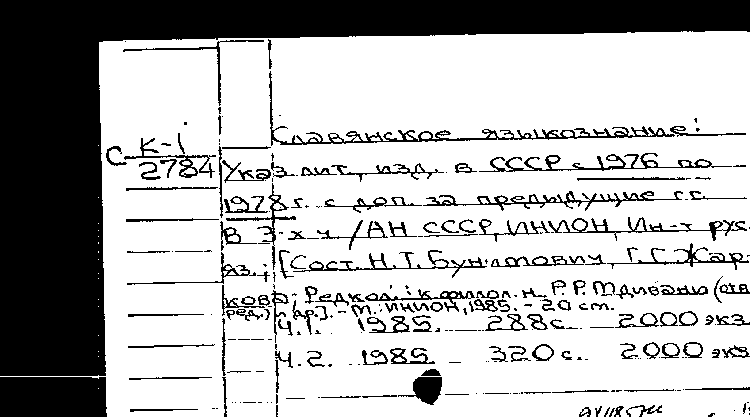 Славянское языкознание:
С К-1
2784
Указ. лит., изд. в СССР с 1976 по
1978 г. с доп. за предыдущие г.г.
В 3-х ч. /АН СССР, ИНИОН, Ин-т рус.
яз.; [Сост. Н.Т. Бунимович, Г.С. Жар-
кова; Редкол.: к.филол.н. Р.Р. Мдивани (отв.
ред.) и др.]. - М.: ИНИОН, 1985. - 20 cm.
Ч.1. 1985. 288 с. 2000 экз
Ч.2. 1985 - 320 с. 2000 экз